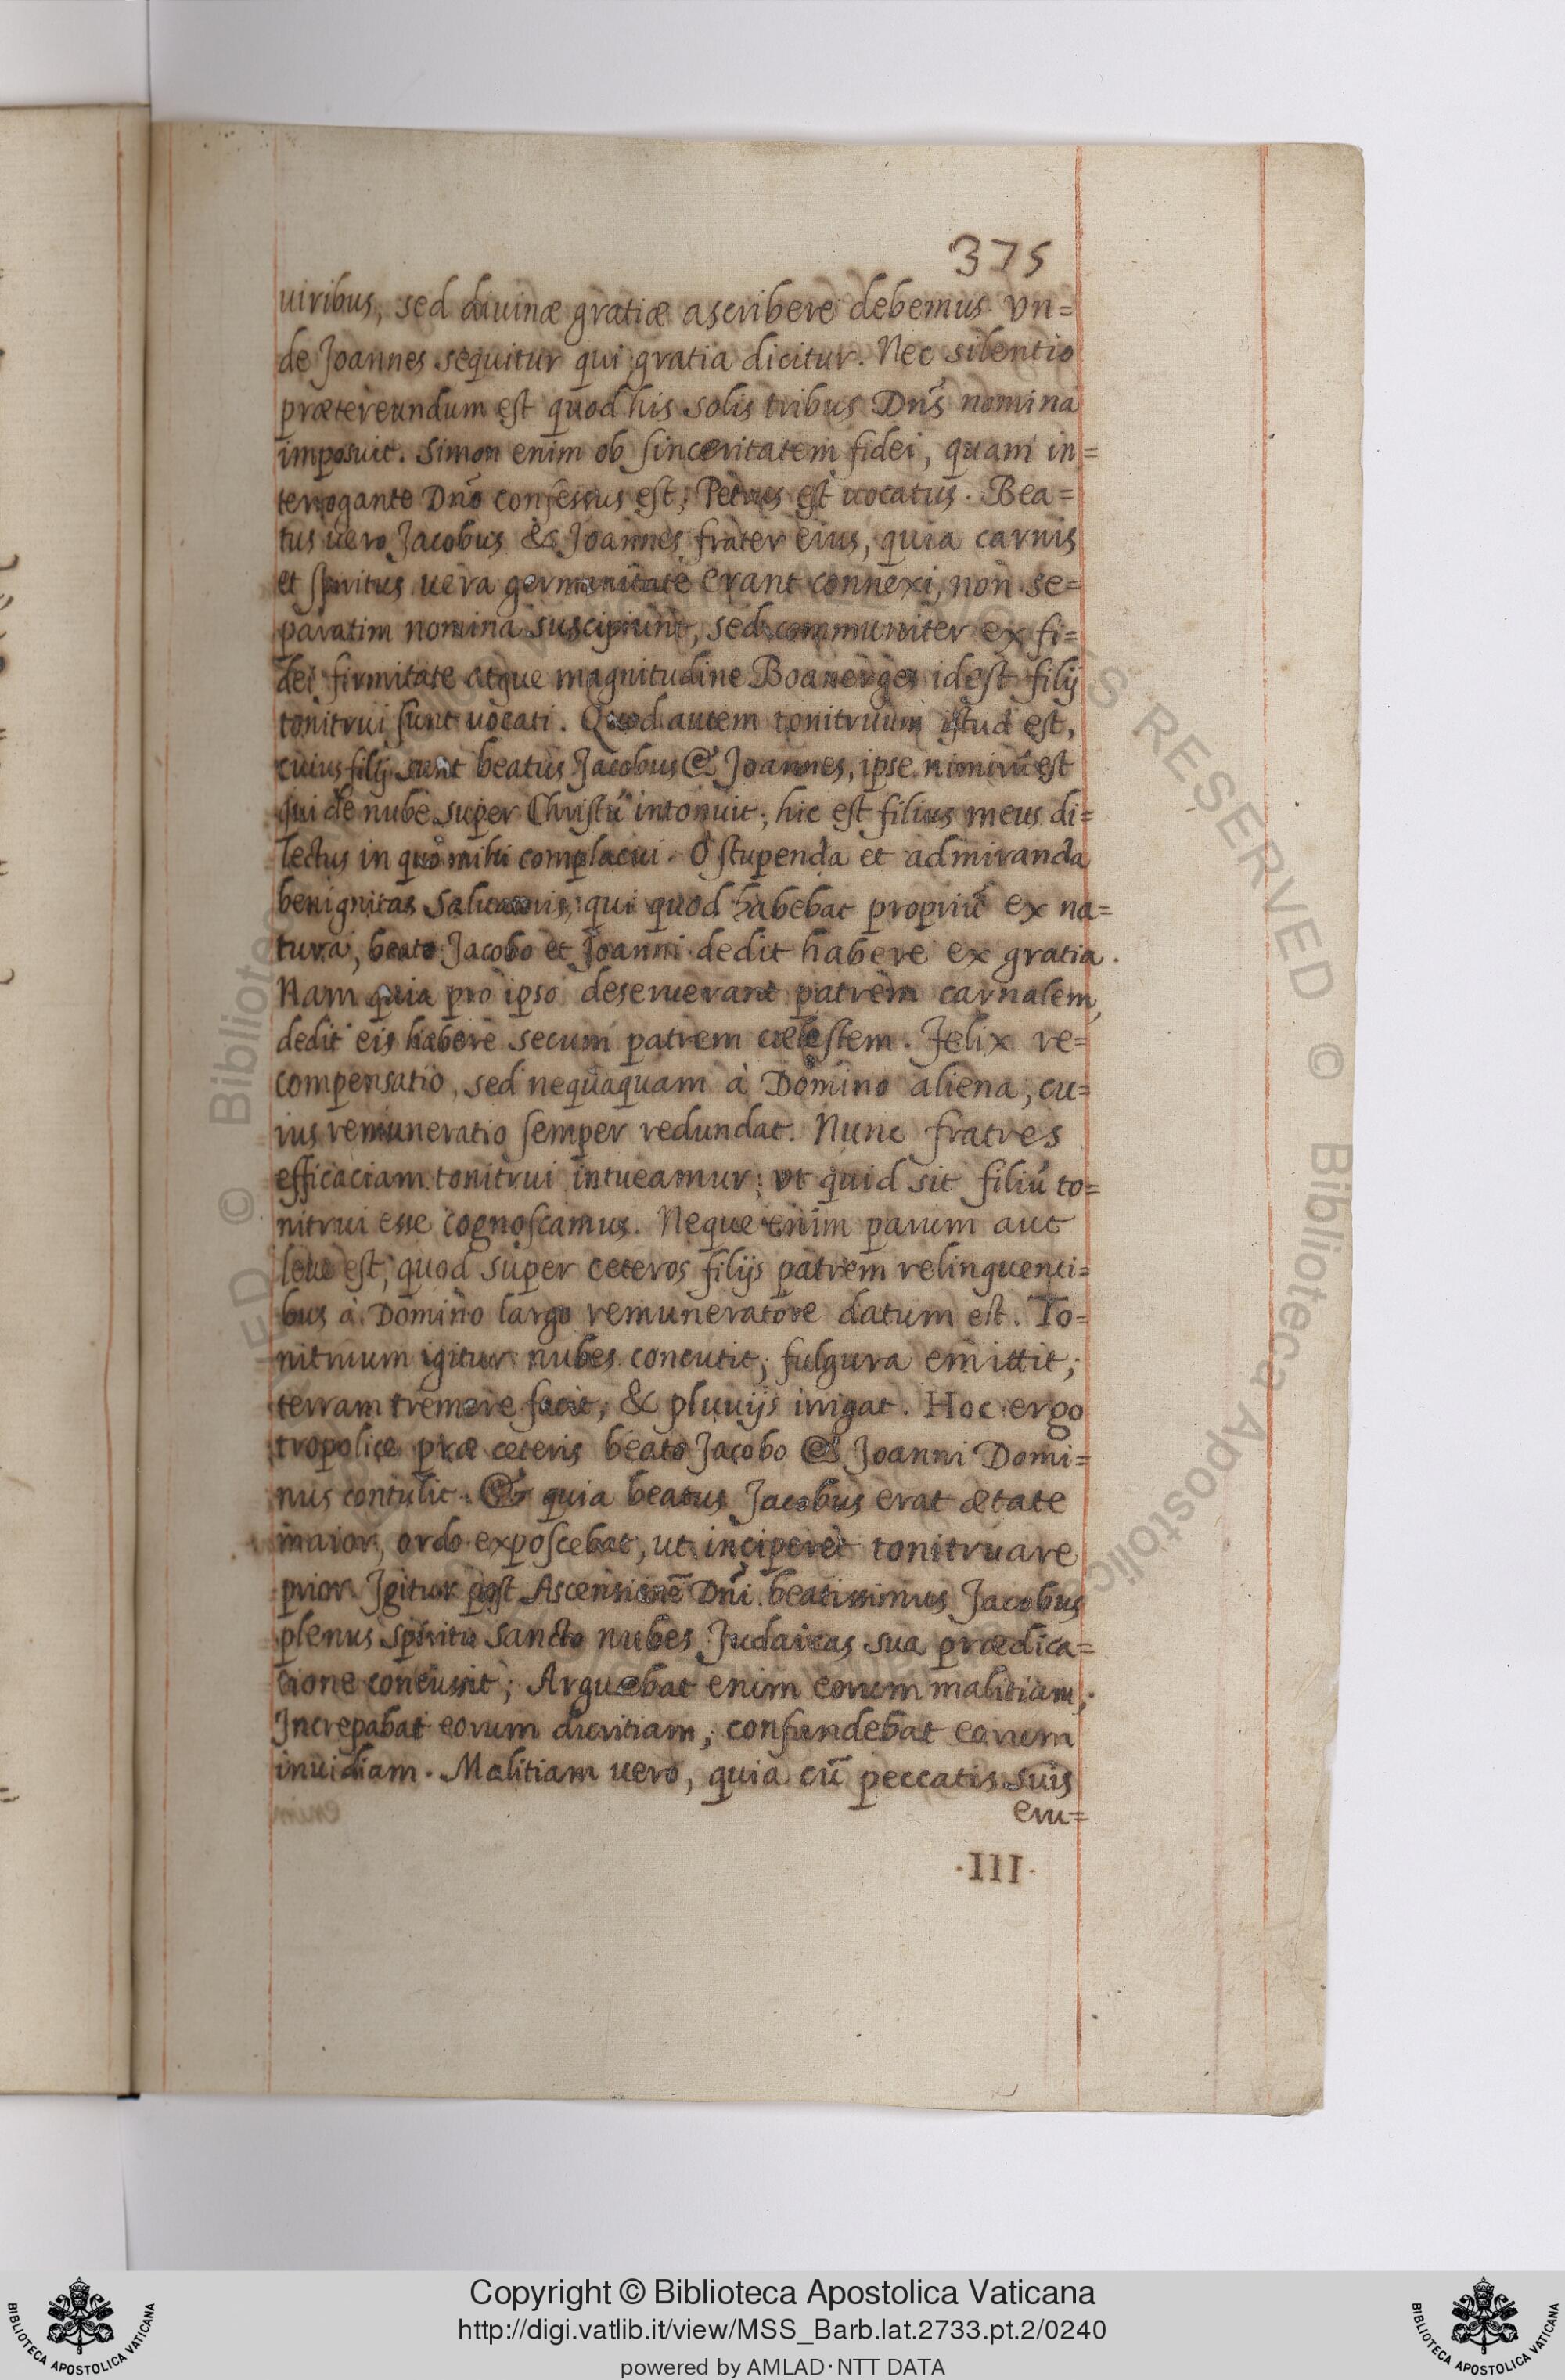 375
uiribus, sed diuinæ gratiæ ascribere debemus. Vn=
de Joannes sequitur qui gratia dicitur. Nec silentio
prætereundum est quod his solis tribus Dn̄s nomina
imposuit. Simon enim ob sinceritatem fidei, quam in=
terrogante Dn̄o confessus est, Petrus est uocatus. Bea=
tus uero Jacobus & Joannes frater eius, quia carnis
et spiritus uera germanitate erant connexi, non se=
paratim nomina suscipiunt, sed communiter ex fi=
dei firmitate atque magnitudine Boanerges idest filij
tonitrui sunt uocati. Quod autem tonitruum istud est,
cuius filij sunt beatus Jacobus & Joannes, ipse nimirū est
qui de nube super Christū intonuit; hic est filius meus di=
lectus in quo mihi complacui. O stupenda et admiranda
benignitas Saluatoris, qui quod habebat propriū ex na=
tura, beato Jacobo et Joanni dedit habere ex gratia.
Nam quia pro ipso deseruerant patrem carnalem,
dedit eis habere secum patrem cælestem. Felix re=
compensatio, sed nequaquam à Domino aliena, cu=
ius remuneratio semper redundat. Nunc fratres
efficaciam tonitrui intueamur; vt quid sit filiū to=
nitrui esse cognoscamus. Neque enim parum aut
leue est, quod super ceteros filijs patrem relinquenti=
bus à Domino largo remuneratore datum est. To=
nitruum igitur nubes concutit; fulgura emittit;
terram tremere facit; & pluuijs irrigat. Hoc ergo
tropolice præ ceteris beato Jacobo & Joanni Domi=
nus contulit. Et quia beatus Jacobus erat ætate
maior, ordo exposcebat, ut inciperet tonitruare
prior. Igitur post Ascensionē Dn̄i beatissimus Jacobus
plenus spiritu sancto nubes Judaicas sua prædica=
tione concussit; Arguebat enim eorum malitiam;
Increpabat eorum duritiam; confundebat eorum
inuidiam. Malitiam uero, quia cū peccatis suis
eru=
·III·
© Biblioteca Apostolica
RESERVED
Copyright © Biblioteca Apostolica Vaticana
http://digi.vatlib.it/view/MSS_Barb.lat.2733.pt.2/0240
powered by AMLAD·NTT DATA
BIBLIOTECA APOSTOLICA VATICANA
BIBLIOTECA APOSTOLICA VATICANA